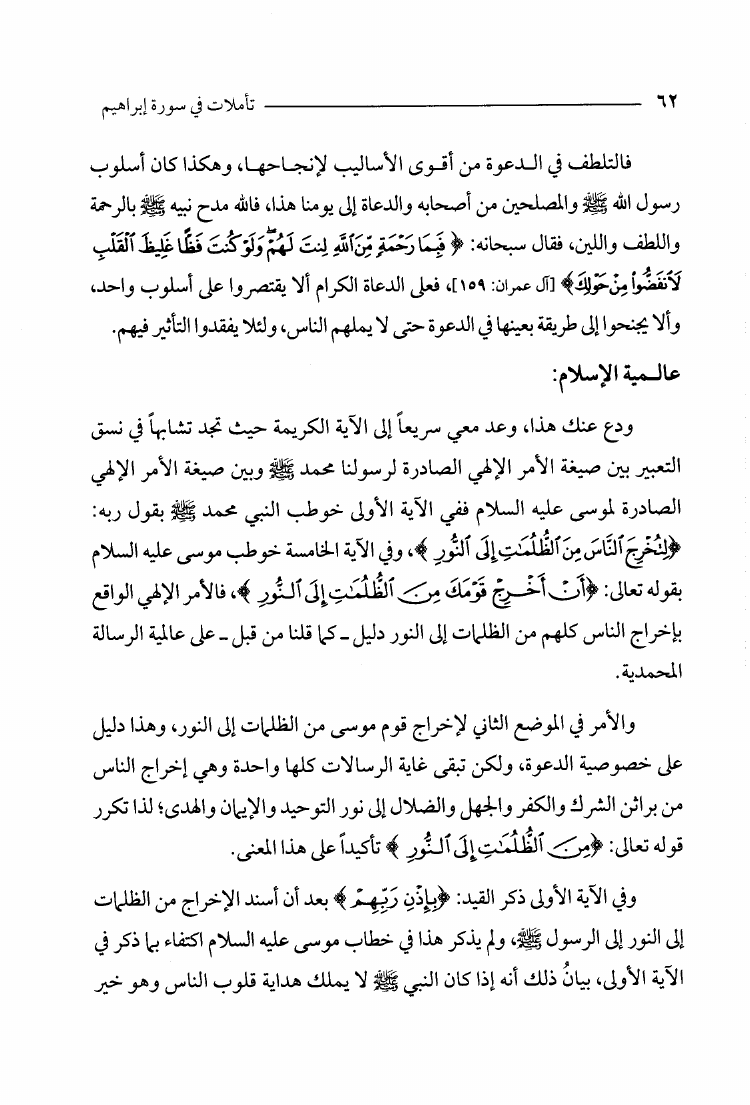 ٦٢ تأملات في سورة إبراهيم
فالتلطف في الـدعوة من أقـوى الأساليب لإنجـاحهـا، وهكذا كان أسلوب
رسول الله ﷺ والمصلحين من أصحابه والدعاة إلى يومنا هذا، فالله مدح نبيه ﷺ بالرحمة
واللطف واللين، فقال سبحانه: ﴿ فَبِمَا رَحْمَةٍ مِّنَ ٱللَّهِ لِنتَ لَهُمْ ۖ وَلَوْ كُنتَ فَظًّا غَلِيظَ ٱلْقَلْبِ
لَٱنفَضُّوا۟ مِنْ حَوْلِكَ﴾ [آل عمران: ١٥٩]، فعلى الدعاة الكرام ألا يقتصروا على أسلوب واحد،
وألا يجنحوا إلى طريقة بعينها في الدعوة حتى لا يملهم الناس، ولئلا يفقدوا التأثير فيهم.
عالـمية الإسلام:
ودع عنك هذا، وعد معي سريعاً إلى الآية الكريمة حيث تجد تشابهاً في نسق
التعبير بين صيغة الأمر الإلهي الصادرة لرسولنا محمد ﷺ وبين صيغة الأمر الإلهي
الصادرة لموسى عليه السلام ففي الآية الأولى خوطب النبي محمد ﷺ بقول ربه:
﴿لِتُخْرِجَ ٱلنَّاسَ مِنَ ٱلظُّلُمَٰتِ إِلَى ٱلنُّورِ ﴾، وفي الآية الخامسة خوطب موسى عليه السلام
بقوله تعالى: ﴿أَنْ أَخْرِجْ قَوْمَكَ مِنَ ٱلظُّلُمَٰتِ إِلَى ٱلنُّورِ ﴾، فالأمر الإلهي الواقع
بإخراج الناس كلهم من الظلمات إلى النور دليل ـ كما قلنا من قبل ـ على عالمية الرسالة
المحمدية.
والأمر في الموضع الثاني لإخراج قوم موسى من الظلمات إلى النور، وهذا دليل
على خصوصية الدعوة، ولكن تبقى غاية الرسالات كلها واحدة وهي إخراج الناس
من براثن الشرك والكفر والجهل والضلال إلى نور التوحيد والإيمان والهدى؛ لذا تكرر
قوله تعالى: ﴿مِنَ ٱلظُّلُمَٰتِ إِلَى ٱلنُّورِ ﴾ تأكيداً على هذا المعنى.
وفي الآية الأولى ذكر القيد: ﴿بِإِذْنِ رَبِّهِمْ ﴾ بعد أن أسند الإخراج من الظلمات
إلى النور إلى الرسول ﷺ، ولم يذكر هذا في خطاب موسى عليه السلام اكتفاء بما ذكر في
الآية الأولى، بيانُ ذلك أنه إذا كان النبي ﷺ لا يملك هداية قلوب الناس وهو خير